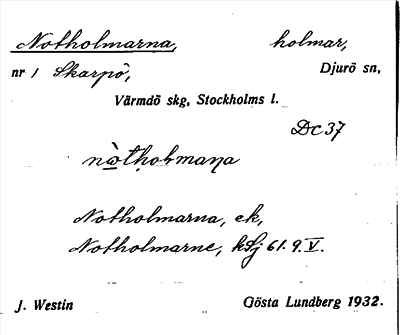 Notholmarna, holmar,
nr 1 Skarpö, Djurö sn,
Värmdö skg, Stockholms l.
Dc 37
Notholmarna, ek,
Notholmarne, kSj 61. 9. V.
J. Westin Gösta Lundberg 1932.